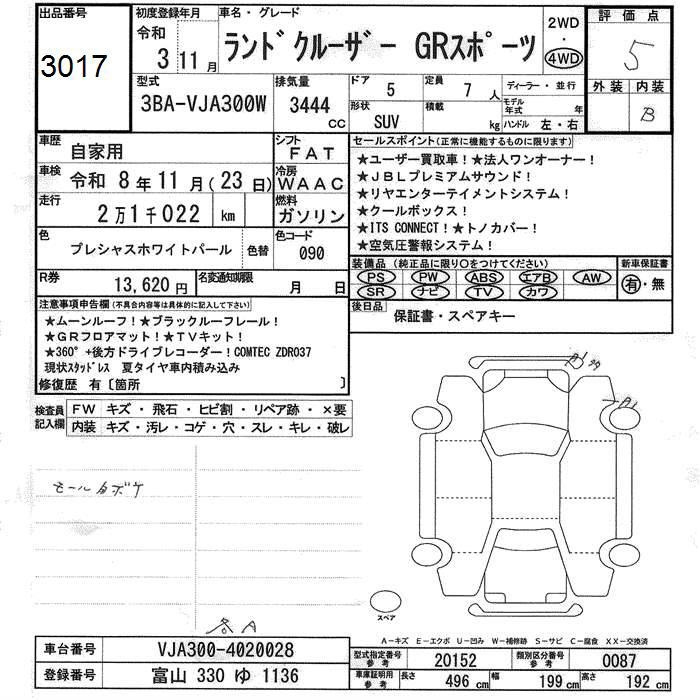 出品番号
3017
初度登録年月
令和
3 11月
車名・グレード
ランドクルーザー GRスポーツ
2WD
・
4WD
評価点
5
外装 内装
B
型式
3BA-VJA300W
排気量
3444
CC
ドア 5
定員 7 人
形状 SUV
積載 kg
ディーラー・並行
モデル年式 年
ハンドル 左・右
車歴 自家用
シフト FAT
車検 令和 8年 11月(23日)
冷房 WAAC
走行 2万1千022 km
燃料 ガソリン
色 プレシャスホワイトパール 色替
色コード 090
R券 13,620円
名変通知期限 月 日
セールスポイント(正常に機能するものに限ります)
★ユーザー買取車!★法人ワンオーナー!
★JBLプレミアムサウンド!
★リヤエンターテイメントシステム!
★クールボックス!
★ITS CONNECT!★トノカバー!
★空気圧警報システム!
装備品(純正品に限り○をつけてください)
PS PW ABS エアB AW
SR ナビ TV カワ
新車保証書
有・無
後日品 保証書・スペアキー
注意事項申告欄(不具合内容等は具体的に記入して下さい)
★ムーンルーフ!★ブラックルーフレール!
★GRフロアマット!★TVキット!
★360°+後方ドライブレコーダー!COMTEC ZDR037
現状スタッドレス 夏タイヤ車内積み込み
修復歴 有〔箇所 〕
検査員記入欄
FW キズ・飛石・ヒビ割・リペア跡・×要
内装 キズ・汚レ・コゲ・穴・スレ・キレ・破レ
モールタボケ
A1
A1
スペア
各A
A-キズ E-エクボ U-凹み W-補修跡 S-サビ C-腐食 XX-交換済
車台番号 VJA300-4020028
登録番号 富山 330 ゆ 1136
型式指定番号 参考 20152
類別区分番号 参考 0087
車庫証明用 参考 長さ 496 cm 幅 199 cm 高さ 192 cm